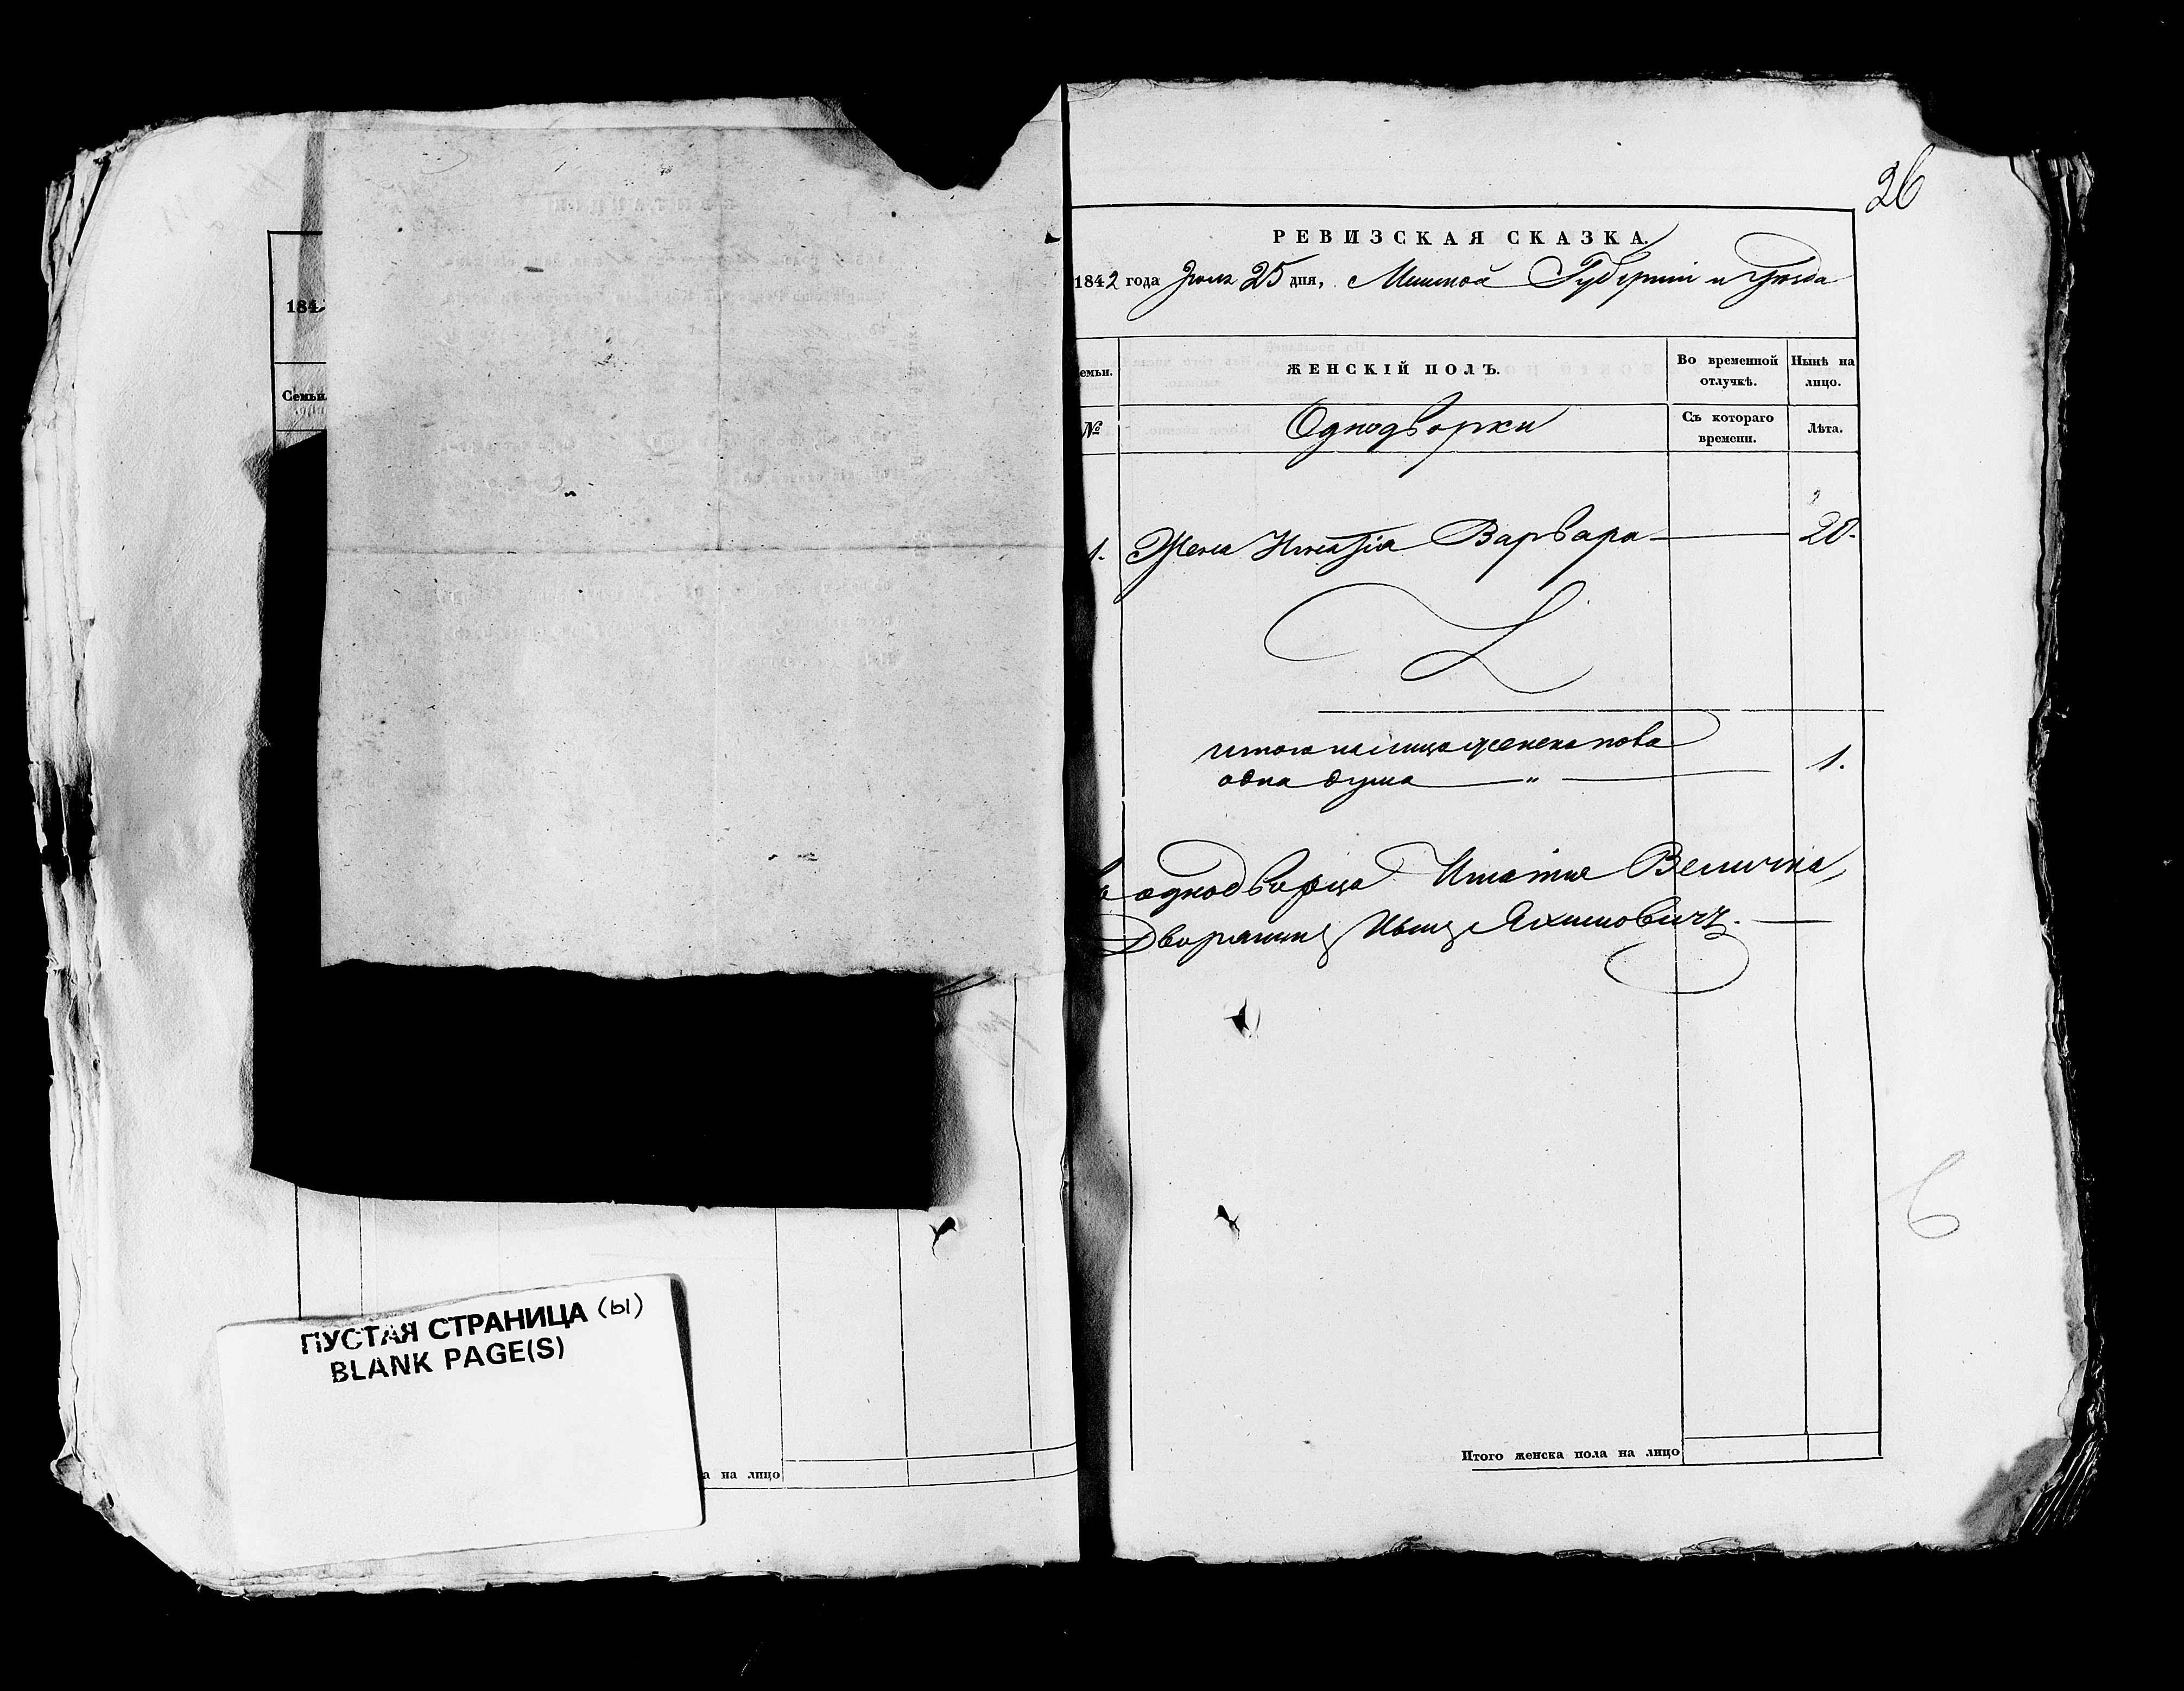 184
Семьи.
26
РЕВИЗСКАЯ СКАЗКА.
1842 года Июля 25 дня, Минской Губерніи и Уѣзда
емьи.
ЖЕНСКІЙ ПОЛЪ.
Во временной отлучкѣ.
Нынѣ на лицо.
№
Однодворки
Съ котораго времени.
Лѣта.
1. Жена Игнатія Варвара 20.
итого на лицо женска пола
одна душа " 1.
однодворца Игнатія Велична,
Дворянинъ Яхимовичъ.
6
Итого женска пола на лицо
а на лицо
ПУСТАЯ СТРАНИЦА (Ы)
BLANK PAGE(S)